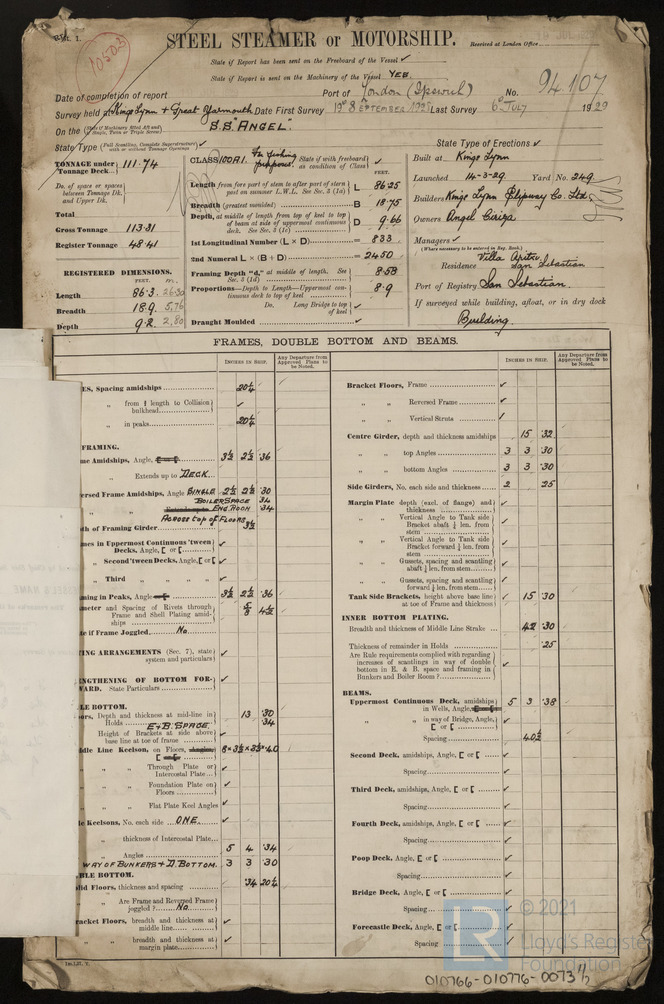 Rpt. 1.
10503
STEEL STEAMER or MOTORSHIP.
Received at London Office
State if Report has been sent on the Freeboard of the Vessel ✓
State if Report is sent on the Machinery of the Vessel YES.
Date of completion of report
Port of London (Ipswich) No. 94107
Survey held at Kings Lynn & Great Yarmouth Date First Survey 19th SEPTEMBER 1928 Last Survey 6th JULY 1929
On the (State if Machinery fitted Aft and if Single, Twin or Triple Screw) S.S. "ANGEL".
State Type (Full Scantling, Complete Superstructure with or without Tonnage Openings) ✓
State Type of Erections ✓
TONNAGE under Tonnage Deck... 111.74
Do. of space or spaces between Tonnage Dk. and Upper Dk.
Total
Gross Tonnage 113.81
Register Tonnage 48.41
REGISTERED DIMENSIONS.
FEET. m.
Length 86.3 26.30
Breadth 18.9 5.76
Depth 9.2 2.80
CLASS 100A1. For fishing purposes. State if with freeboard as condition of Class ✓
FEET.
Length from fore part of stem to after part of stern post on summer L.W.L. See Sec. 3 (1a) L 86.25
Breadth (greatest moulded) B 18.75
Depth, at middle of length from top of keel to top of beam at side of uppermost continuous deck. See Sec. 3 (1c) D 9.66
1st Longitudinal Number (L × D) = 833
2nd Numeral L × (B + D) = 2450
Framing Depth "d," at middle of length. See Sec. 3 (1d) 8.58
Proportions—Depth to Length—Uppermost continuous deck to top of keel 8.9
Do. Long Bridge to top of keel
Draught Moulded ✓
Built at Kings Lynn
Launched 14-3-29. Yard No. 249.
Builders Kings Lynn Slipway Co. Ltd.
Owners Angel Ciriza
Managers ✓
(Where necessary to be entered in Reg. Book.)
Residence Villa Apitre San Sebastian
Port of Registry San Sebastian.
If surveyed while building, afloat, or in dry dock
Building.
FRAMES, DOUBLE BOTTOM AND BEAMS.
INCHES IN SHIP.
Any Departure from Approved Plans to be Noted.
ES, Spacing amidships 20¼
" from ⅗ length to Collision bulkhead ✓
" in peaks 20¼
FRAMING.
me Amidships, Angle, 3½ 2½ .36
" Extends up to DECK.
ersed Frame Amidships, Angle SINGLE 2½ 2½ .30
BOILER SPACE .34
ENG. ROOM .34
ACROSS TOP OF FLOORS
th of Framing Girder 3½
mes in Uppermost Continuous 'tween Decks, Angle, [ or [ ✓
" Second 'tween Decks, Angle, [ or [ ✓
" Third " " " " ✓
ming in Peaks, Angle 3½ 2½ .36
meter and Spacing of Rivets through Frame and Shell Plating amidships 5/8 4½
te if Frame Joggled No
ING ARRANGEMENTS (Sec. 7), state system and particulars ✓
ENGTHENING OF BOTTOM FORWARD. State Particulars ✓
LE BOTTOM.
ors, Depth and thickness at mid-line in Holds 13 .30
E & B. SPACE .34
Height of Brackets at side above base line at toe of frame ✓
dle Line Keelson, on Floors, Angles, 8 × 3½ × 3½ × .40
" " Through Plate or Intercostal Plate ✓
" " Foundation Plate on Floors ✓
" " Flat Plate Keel Angles ✓
e Keelsons, No. each side ONE.
" thickness of Intercostal Plate
" Angles 5 4 .34
WAY OF BUNKERS & D. BOTTOM. 3 3 .30
BLE BOTTOM.
lid Floors, thickness and spacing .34 20¼
" Are Frame and Reversed Frame joggled? No
racket Floors, breadth and thickness at middle line ✓
" breadth and thickness at margin plate ✓
Bracket Floors, Frame ✓
" " Reversed Frame ✓
" " Vertical Struts ✓
Centre Girder, depth and thickness amidships 15 .32
" " top Angles 3 3 .30
" " bottom Angles 3 3 .30
Side Girders, No. each side and thickness 2 .25
Margin Plate depth (excl. of flange) and thickness ✓
" " Vertical Angle to Tank side Bracket abaft ¼ len. from stem ✓
" " Vertical Angle to Tank side Bracket forward ¼ len. from stem ✓
" " Gussets, spacing and scantling abaft ¼ len. from stem ✓
" " Gussets, spacing and scantling forward ¼ len. from stem ✓
Tank Side Brackets, height above base line at toe of Frame and thickness 15 .30
INNER BOTTOM PLATING.
Breadth and thickness of Middle Line Strake 42 .30
Thickness of remainder in Holds .25
Are Rule requirements complied with regarding increases of scantlings in way of double bottom in E. & B. space and framing in Bunkers and Boiler Room? ✓
BEAMS.
Uppermost Continuous Deck, amidships in Wells, Angle, 5 3 .38
" " in way of Bridge, Angle, [ or [ ✓
Spacing 40½
Second Deck, amidships, Angle, [ or [ ✓
Spacing ✓
Third Deck, amidships, Angle, [ or [ ✓
Spacing ✓
Fourth Deck, amidships, Angle, [ or [ ✓
Spacing ✓
Poop Deck, Angle, [ or [ ✓
Spacing ✓
Bridge Deck, Angle, [ or [ ✓
Spacing ✓
Forecastle Deck, Angle, [ or [ ✓
Spacing ✓
LR
© 2021
Lloyd's Register
Foundation
010766-010776-0073 1/2